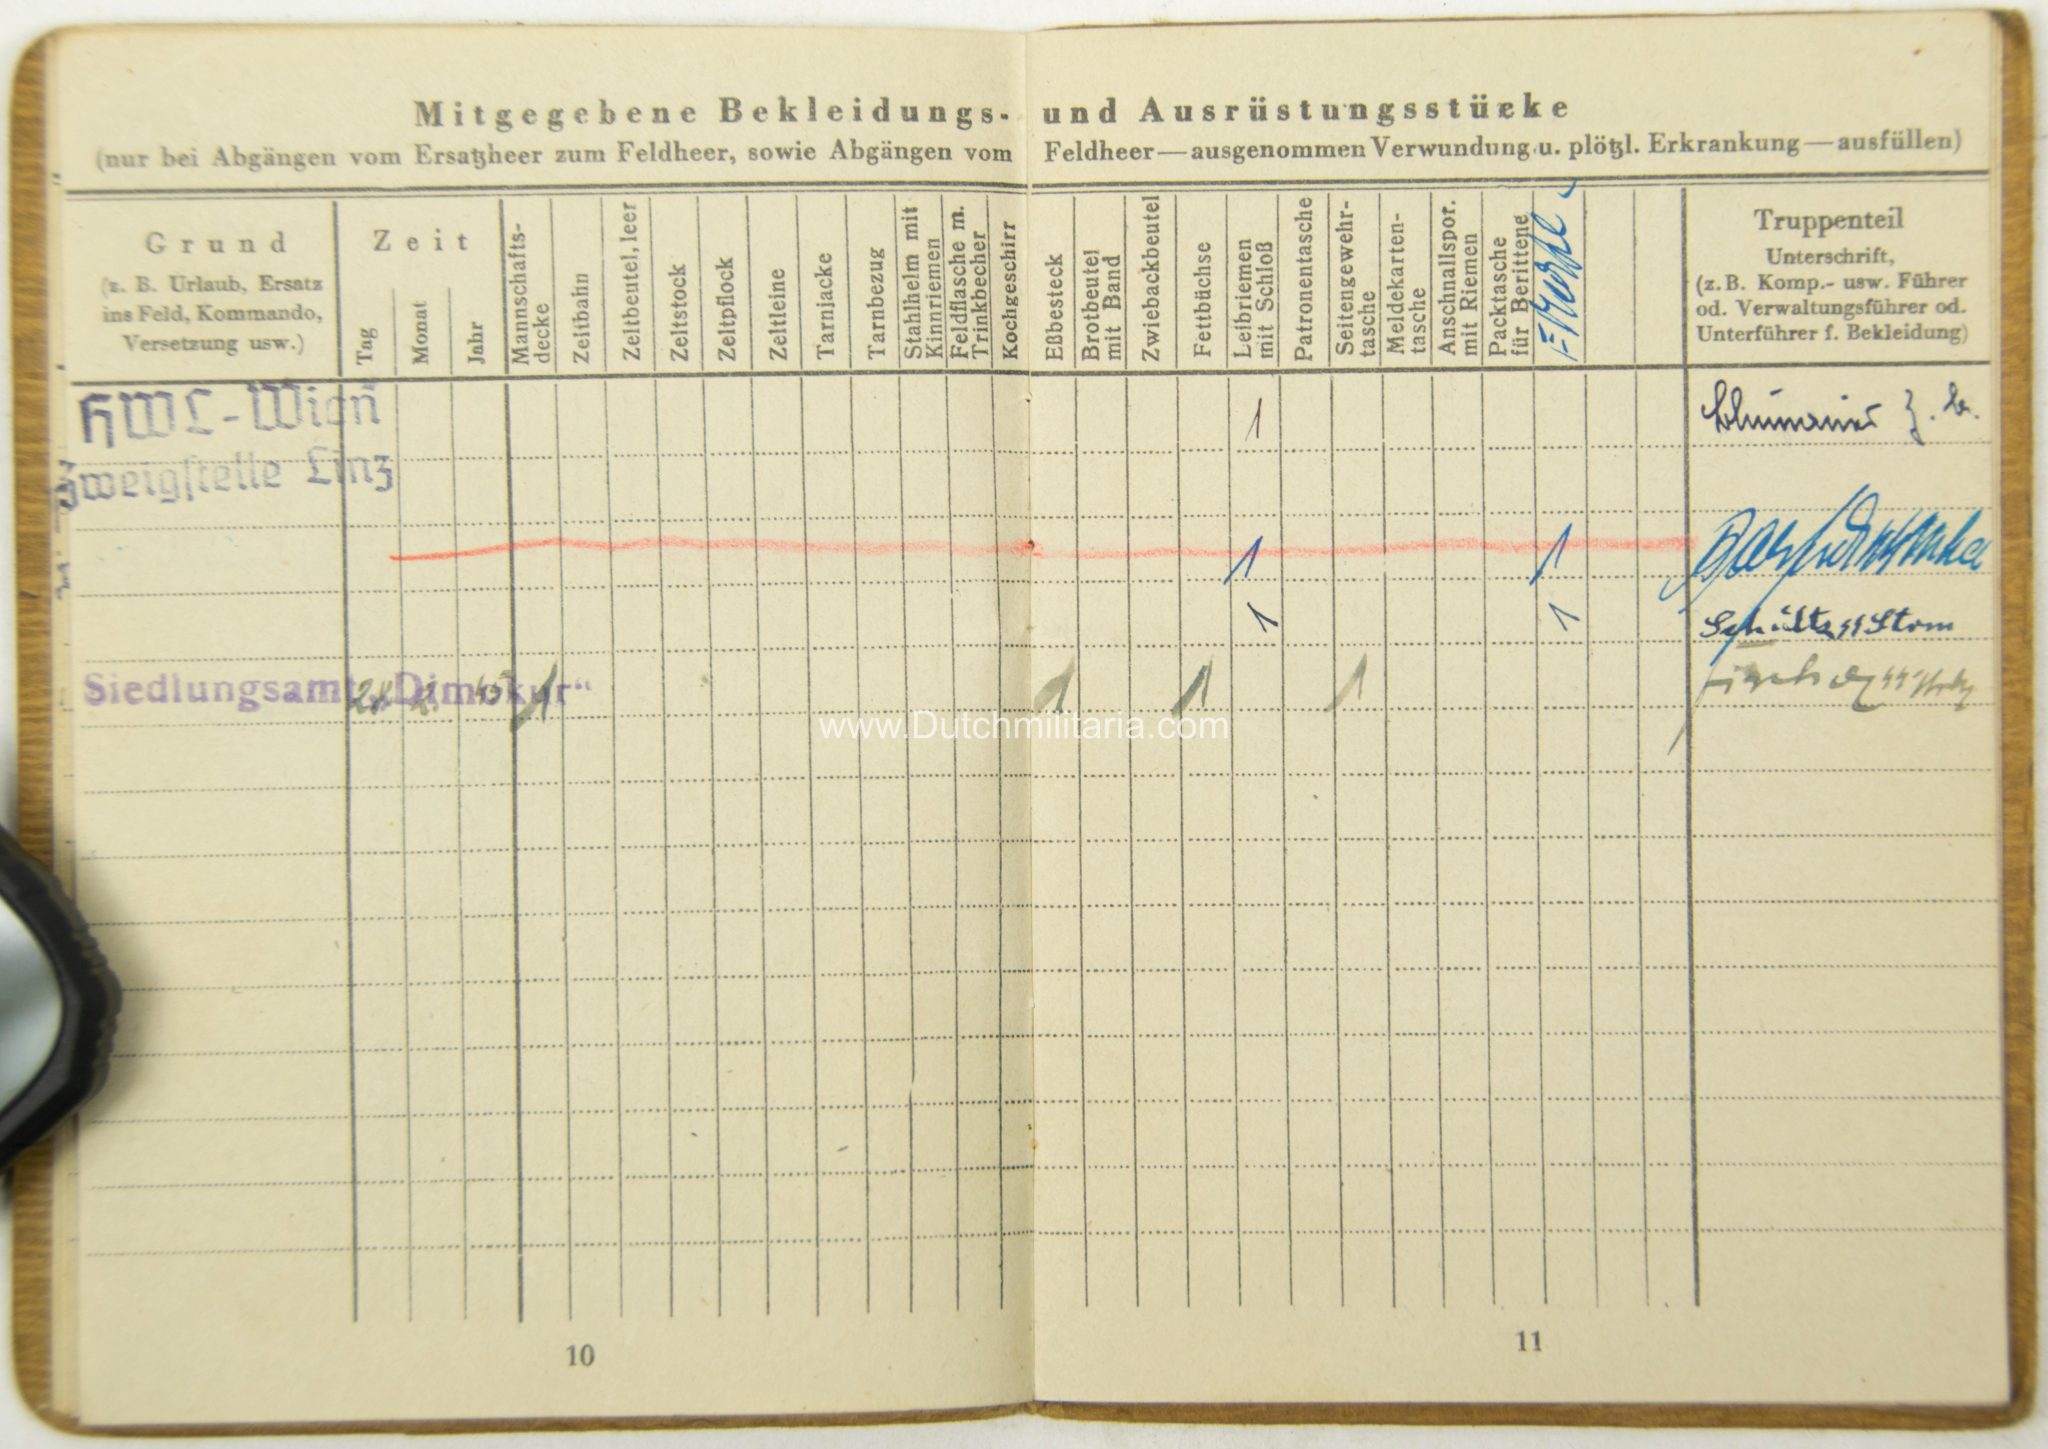 Mitgegebene Bekleidungs- und Ausrüstungsstücke
(nur bei Abgängen vom Ersatzheer zum Feldheer, sowie Abgängen vom Feldheer — ausgenommen Verwundung u. plötzl. Erkrankung — ausfüllen)
Grund
(z. B. Urlaub, Ersatz
ins Feld, Kommando,
Versetzung usw.)
Zeit
Tag
Monat
Jahr
Mannschafts-
decke
Zeltbahn
Zeltbeutel, leer
Zeltstock
Zeltpflock
Zeltleine
Tarnjacke
Tarnbezug
Stahlhelm mit
Kinnriemen
Feldflasche m.
Trinkbecher
Kochgeschirr
Eßbesteck
Brotbeutel
mit Band
Zwiebackbeutel
Fettbüchse
Leibriemen
mit Schloß
Patronentasche
Seitengewehr-
tasche
Meldekarten-
tasche
Anschnallspor.
mit Riemen
Packtasche
für Berittene
Truppenteil
Unterschrift,
(z. B. Komp.- usw. Führer
od. Verwaltungsführer od.
Unterführer f. Bekleidung)
HWL-Wien
Zweigstelle Linz
1
1 1
1 1 Schultz SS Strm
Siedlungsamt „Dimokur“ 2 45 1 1 1 1
www.Dutchmilitaria.com
10
11